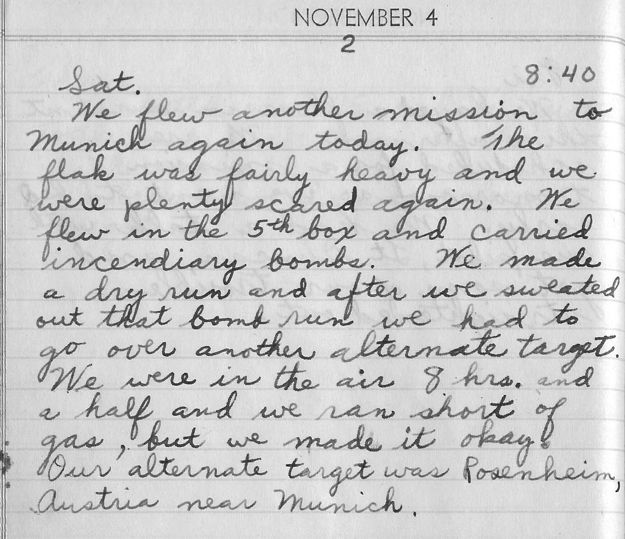 NOVEMBER 4
2
Sat. 8:40
We flew another mission to
Munich again today. The
flak was fairly heavy and we
were plenty scared again. We
flew in the 5th box and carried
incendiary bombs. We made
a dry run and after we sweated
out that bomb run we had to
go over another alternate target.
We were in the air 8 hrs. and
a half and we ran short of
gas, but we made it okay.
Our alternate target was Rosenheim,
Austria near Munich.